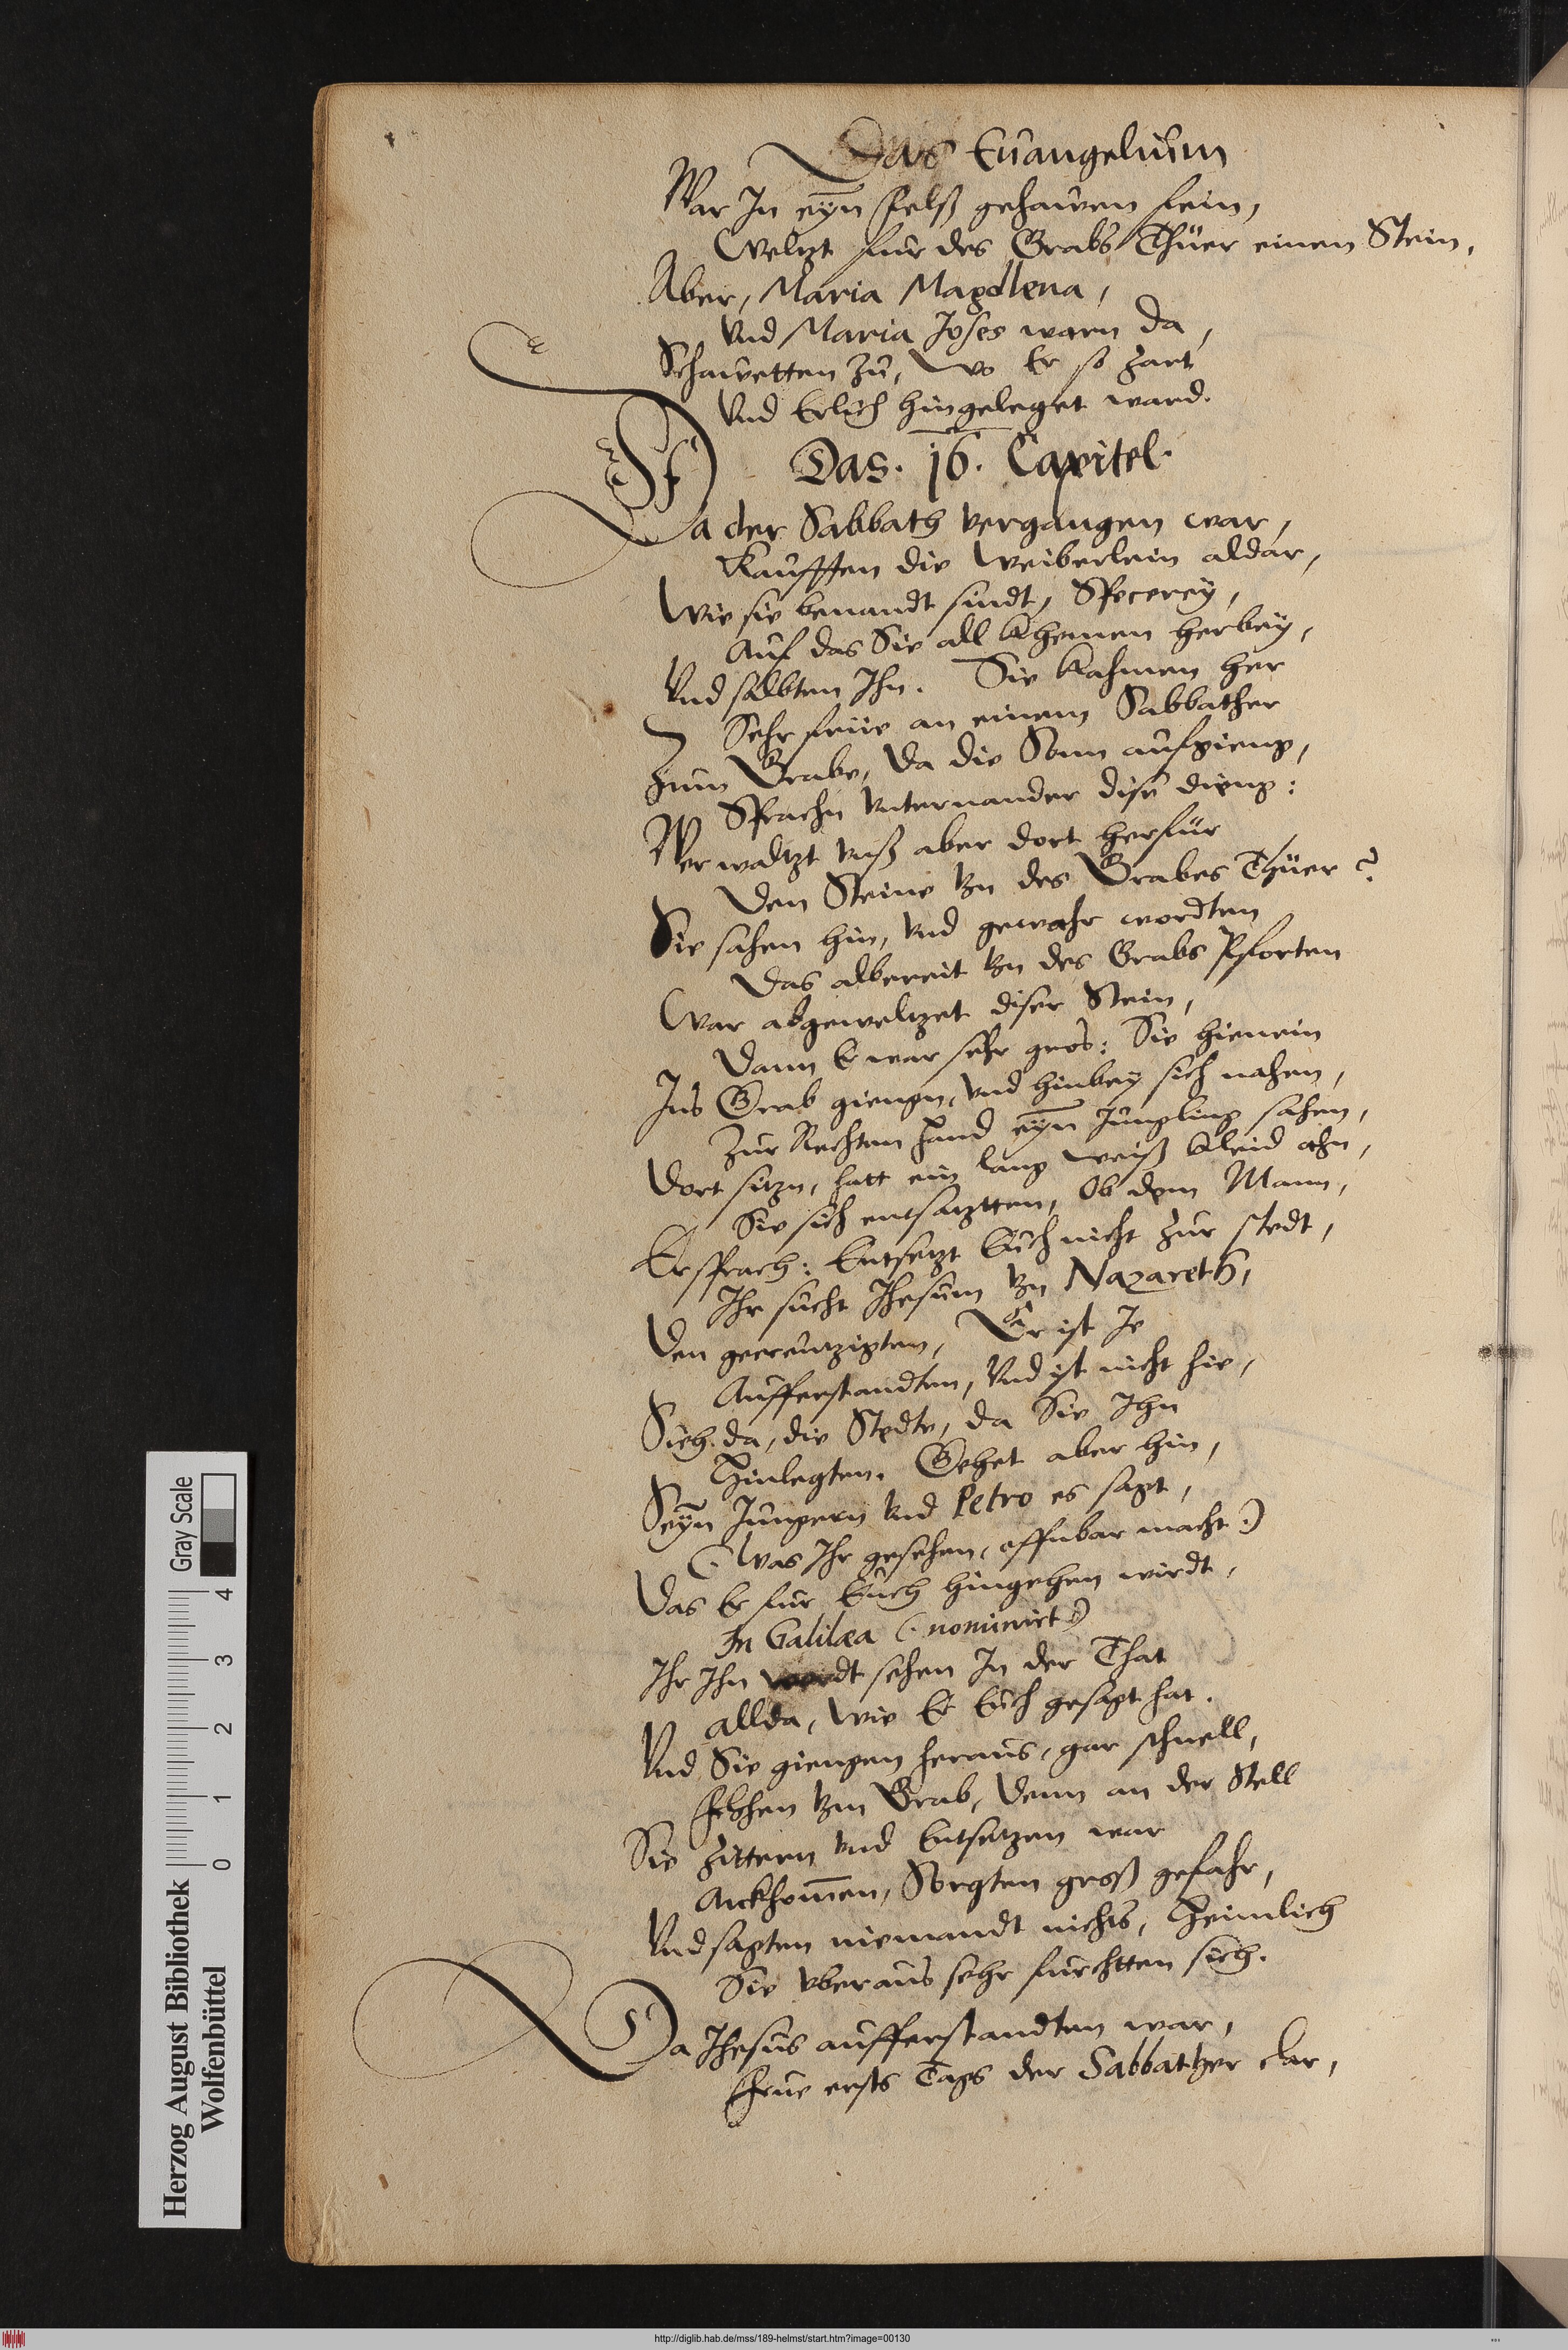 Das Euangelium
War In eyn felß gehawen fein,
Weltzt fur des Grabs Thüer einen Stein.
Aber, Maria Magdlena,
Vnd Maria Joses warn da,
Schawetten zu, wo Er so zart
Vnd Erlich hingeleget ward.
Das. 16. Capitel.
Da der Sabbath vergangen war,
Kaufften die Weiberlein aldar,
Wie sie benandt sindt, Specerey,
Auf das Sie all khemen herbey,
Vnd salbten Ihn. Sie kahmen her
Sehr früe an einem Sabbather
Zum Grabe, da die Sonn aufgieng,
Sprachn vnternander dise dieng:
Wer waltzt vnß aber dort herfür
Den Steine von des Grabes Thüer?
Sie sahen hin, vnd gewahr wordten
Das albereit von des Grabs Pforten
War abgeweltzet diser Stein,
Dann Er war sehr gros: Sie hienein
Ins Grab giengn, vnd hinbey sich nahen,
Zur Rechten Hand eyn Jungling sahen,
Dort sitzn, hatt ein lang weiß kleid ahn,
Sie sich entsatztten, Ob dem Mann,
Er sprach: Entsetzt Euch nicht zur stedt,
Ihr sucht Ihesum von Nazareth,
Den gecreutzigten, Er ist Je
Aufferstandten, Vnd ist nicht hie,
Sieh da, die Stedte, da Sie Ihn
Hinlegten. Gehet aber hin,
Seyn Jungern Vnd Petro es sagt,
(. Was Ihr gesehen, offnbar macht:)
Das Er fur Euch hingehen wirdt,
In Galilæa (. nominirt:)
Ihr Ihn werdt sehen In der That
allda, wie Er Euch gesagt hat.
Vnd Sie giengen heraus, gar schnell,
Flohen vom Grab, Denn an der Stell
Sie Zittern vnd Entsetzen war
Ankhomen, Sorgten groß gefahr,
Vnd sagten niemandt nichts, Heimlich
Sie vberaus sehr furchtten sich.
Da Ihesus aufferstandten war,
Frue ersts Tags der Sabbather clar,
Herzog August Bibliothek
Wolfenbüttel
0 1 2 3 4
Gray Scale
http://diglib.hab.de/mss/189-helmst/start.htm?image=00130